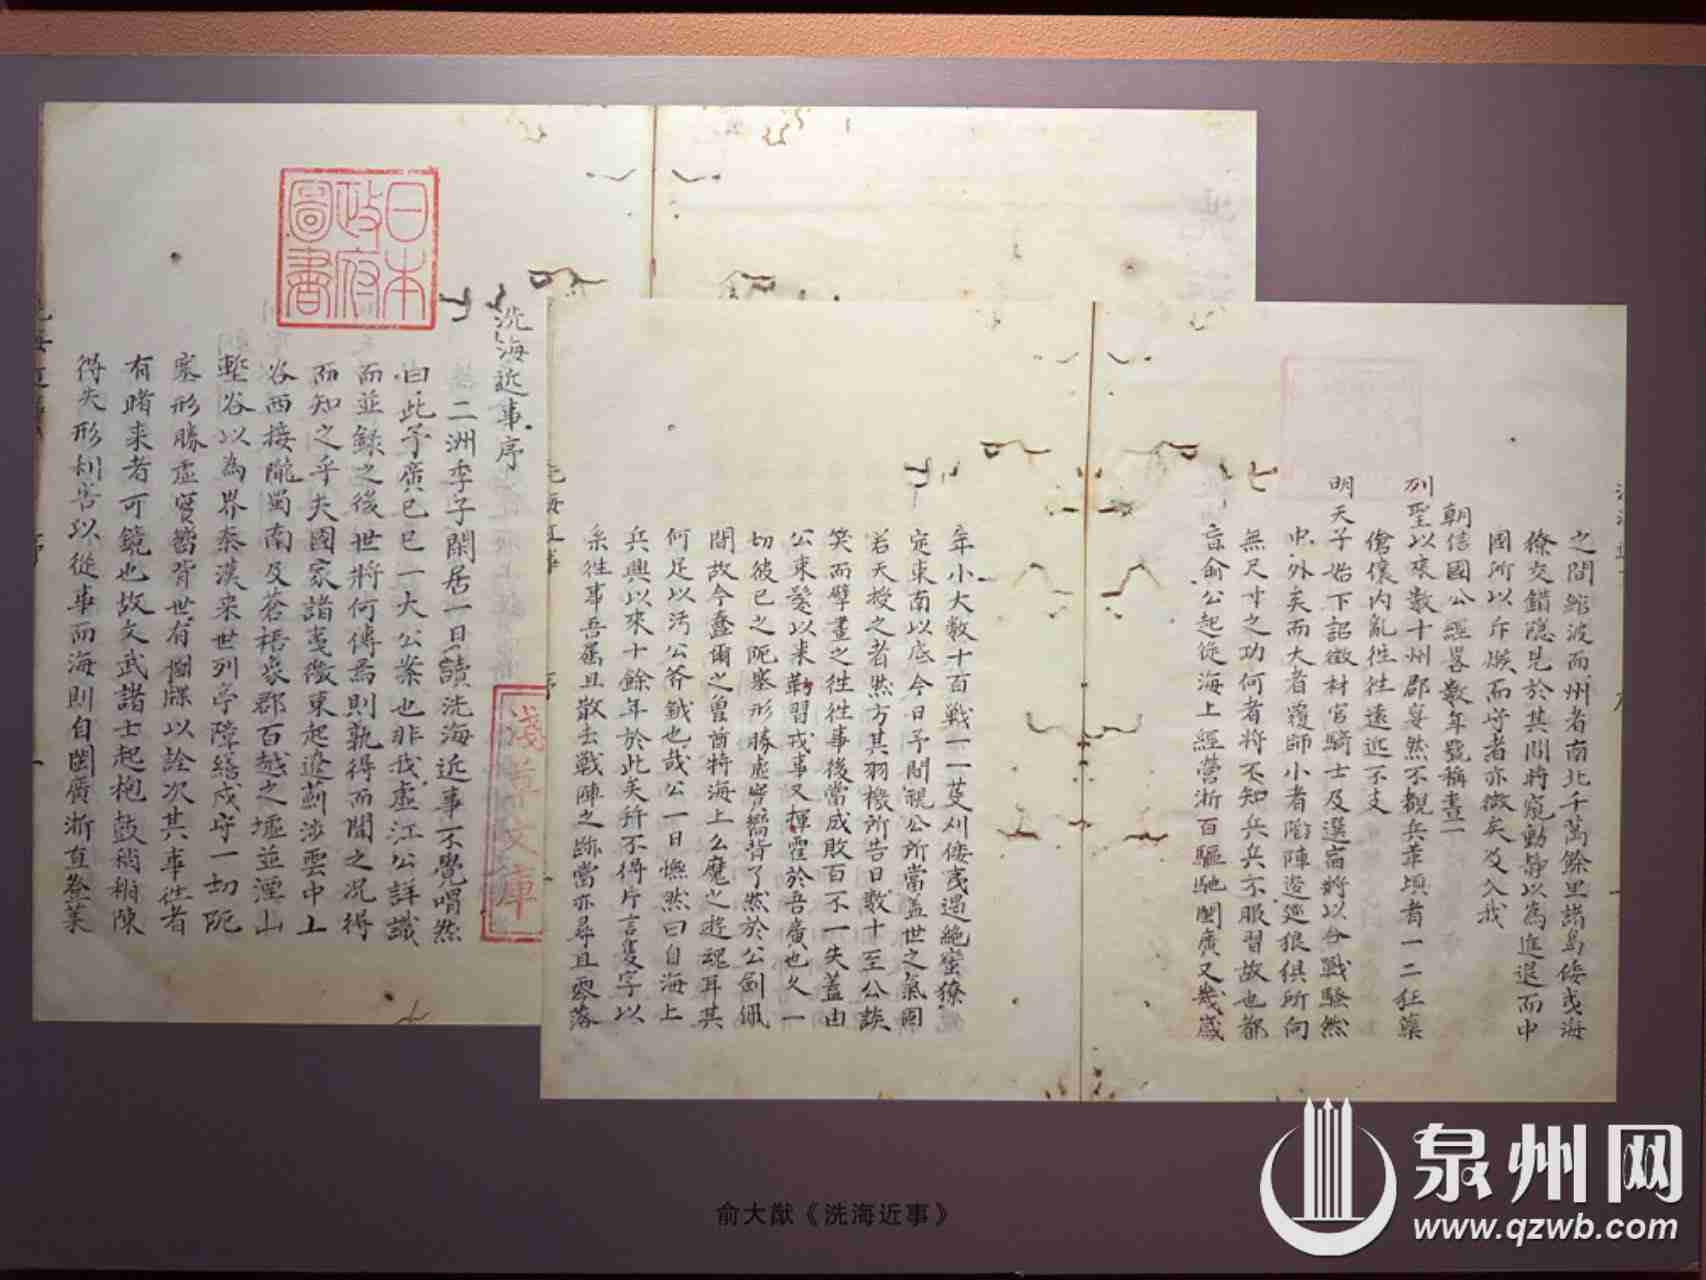 日本
政府
圖書
洗海近事序
二洲李子閑居一日讀洗海近事不覺喟然
曰此予廣已已一大公案也非我虛江公詳識
而並錄之後世將何傳焉則孰得而聞之况得
而知之乎夫國家諸夷徼東起遼薊涉雲中上
谷西接隴蜀南及蒼梧象郡百越之墟並湮山
塹谷以為界秦漢来世列亭障繕戍守一切阨
塞形勝虛實嚮背世有圖牒以詮次其事徃者
有睹来者可鏡也故文武諸士起枹鼓稍稍陳
得失形利害以從事而海則自閩廣浙直登萊
淺草文庫
之間縮波而州者南北千萬餘里諸島倭夷海
獠交錯隱見於其間將窺動靜以為進退而中
國所以斥堠而守者亦微矣及入我
朝信國公經畧數年號稱畫一
列聖以來數十州郡晏然不觀兵革頃者一二狂藥
傖儴內亂徃徃遠近不支
明天子始下詔徵材官騎士及選富將以合戰騷然
中外矣而大者覆師小者陷陣逡巡狼俱所向
無尺寸之功何者將不知兵兵不服習故也都
督俞公起從海上經營浙百驅馳閩廣又幾歲
年小大數十百戰一一芟刈倭夷遏絕蜑獠
定東南以底今日予間視公所當盖世之氣固
若天授之者然方其羽檄所告日數十至公談
笑而擘畫之徃徃事後當成敗百不一失蓋由
公束髮以来勒習戎事又揮霍於吾廣也久一
切彼已之阨塞形勝虛實嚮背了然於公劍佩
間故今蠢爾之曾酋特海上么魔之遊魂耳其
何足以污公斧鉞也哉公一日憮然曰自海上
兵興以來十餘年於此矣所不得片言隻字以
糸徃事吾屬且散去戰陣之跡當亦尋且零落
俞大猷《洗海近事》
泉州网
www.qzwb.com